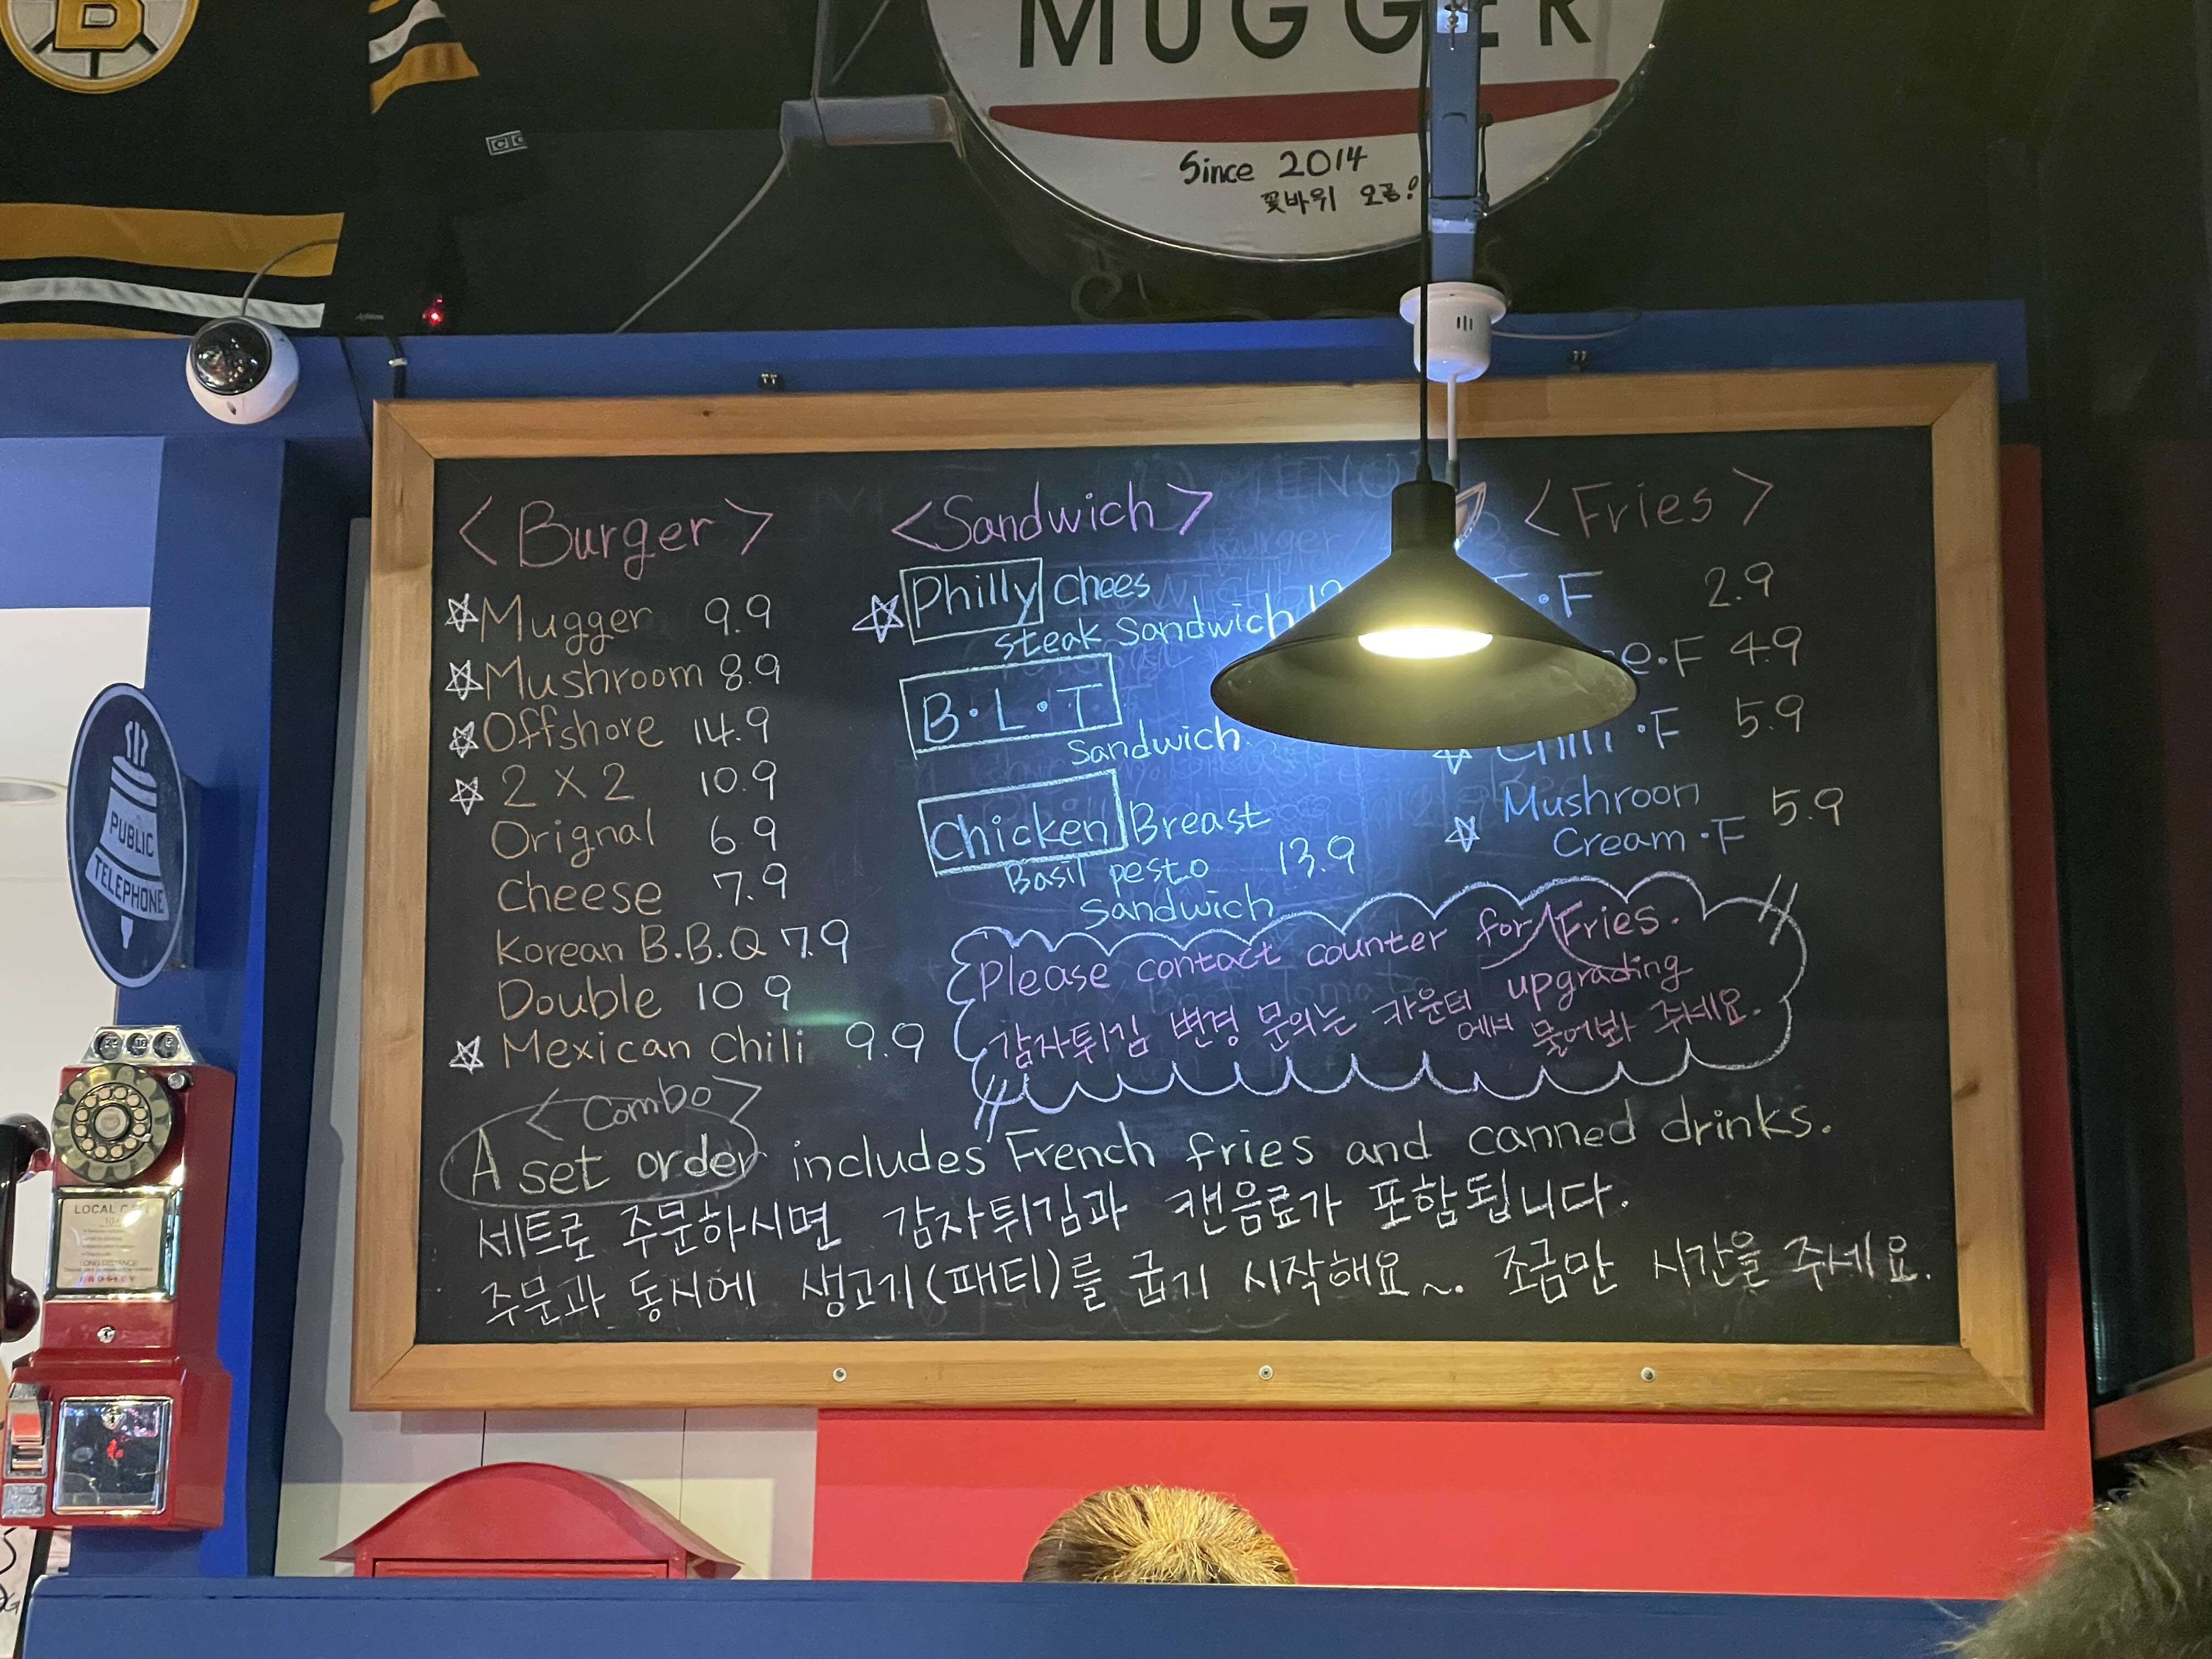 MUGGER
Since 2014
꽃바위 오픈!
B
CC
PUBLIC
TELEPHONE
<Burger>
☆Mugger 9.9
☆Mushroom 8.9
☆Offshore 14.9
☆2 X 2 10.9
Orignal 6.9
Cheese 7.9
Korean B.B.Q 7.9
Double 10 9
☆Mexican Chili 9.9
<Sandwich>
☆Philly Chees
steak Sandwich
B.L.T
Sandwich
Chicken Breast
Basil pesto 13.9
Sandwich
<Fries>
.F 2.9
e.F 4.9
☆Chili.F 5.9
Mushroom 5.9
☆Cream.F
Please contact counter for Fries.
upgrading
감자튀김 변경 문의는 카운터
에서 물어봐 주세요.
<Combo>
A set order includes French fries and canned drinks.
세트로 주문하시면 감자튀김과 캔음료가 포함됩니다.
주문과 동시에 생고기(패티)를 굽기 시작해요~. 조금만 시간을 주세요.
LOCAL
10¢
LONG DISTANCE
CROSLEY